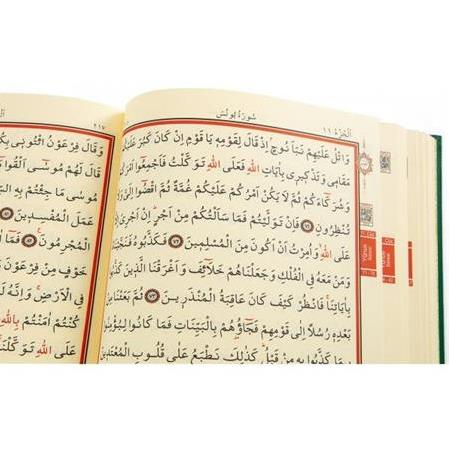 الجزء ١١
سورة يونس
وَاتْلُ عَلَيْهِمْ نَبَاَ نُوحٍ اِذْ قَالَ لِقَوْمِهِ يَا قَوْمِ اِنْ كَانَ كَبُرَ عَلَيْكُمْ
مَقَامِي وَتَذْكِيرِي بِاٰيَاتِ اللّٰهِ فَعَلَى اللّٰهِ تَوَكَّلْتُ فَاَجْمِعُوا
وَشُرَكَاءَكُمْ ثُمَّ لَا يَكُنْ اَمْرُكُمْ عَلَيْكُمْ غُمَّةً ثُمَّ اقْضُوا اِلَيَّ
تُنْظِرُونِ ٧١ فَاِنْ تَوَلَّيْتُمْ فَمَا سَاَلْتُكُمْ مِنْ اَجْرٍ اِنْ اَجْرِيَ
عَلَى اللّٰهِ وَاُمِرْتُ اَنْ اَكُونَ مِنَ الْمُسْلِمِينَ ٧٢ فَكَذَّبُوهُ
وَمَنْ مَعَهُ فِي الْفُلْكِ وَجَعَلْنَاهُمْ خَلَائِفَ وَاَغْرَقْنَا الَّذِينَ
بِاٰيَاتِنَا فَانْظُرْ كَيْفَ كَانَ عَاقِبَةُ الْمُنْذَرِينَ ٧٣ ثُمَّ بَعَثْنَا
بَعْدِهِ رُسُلًا اِلَى قَوْمِهِمْ فَجَاؤُهُمْ بِالْبَيِّنَاتِ فَمَا كَانُوا لِيُؤْمِنُوا
بِمَا كَذَّبُوا بِهِ مِنْ قَبْلُ كَذٰلِكَ نَطْبَعُ عَلَى قُلُوبِ الْمُعْتَدِينَ
٢١٧
وَقَالَ فِرْعَوْنُ ائْتُونِي بِكُلِّ
قَالَ لَهُمْ مُوسٰى اَلْقُوا
مُوسٰى مَا جِئْتُمْ بِهِ
عَمَلَ الْمُفْسِدِينَ ٨١
الْمُجْرِمُونَ ٨٢ فَمَا
خَوْفٍ مِنْ فِرْعَوْنَ
فِي الْاَرْضِ وَاِنَّهُ
كُنْتُمْ اٰمَنْتُمْ بِاللّٰهِ
عَلَى اللّٰهِ تَوَكَّلْنَا